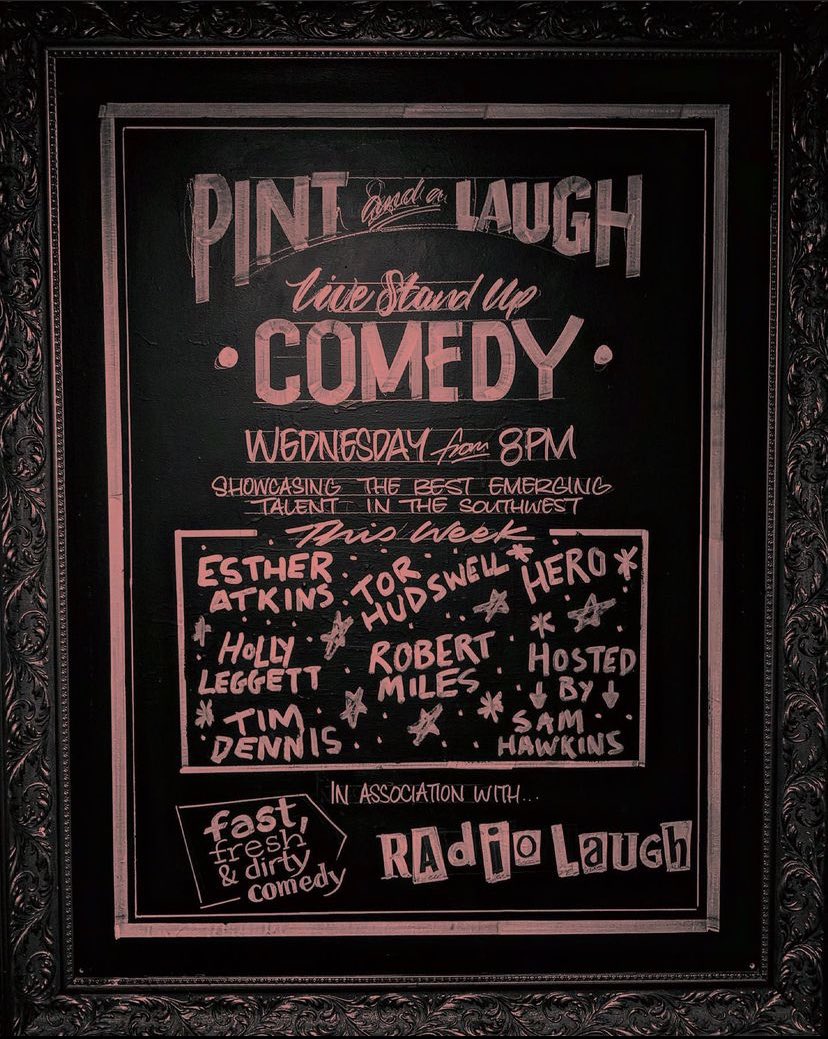 PINT and a LAUGH
Live Stand Up
COMEDY
WEDNESDAY from 8PM
SHOWCASING THE BEST EMERGING
TALENT IN THE SOUTHWEST
This Week
ESTHER
ATKINS
TOR
HUDSWELL
HERO
HOLLY
LEGGETT
ROBERT
MILES
TIM
DENNIS
HOSTED
BY
SAM
HAWKINS
IN ASSOCIATION WITH...
fast,
fresh
& dirty
comedy
RAdio Laugh